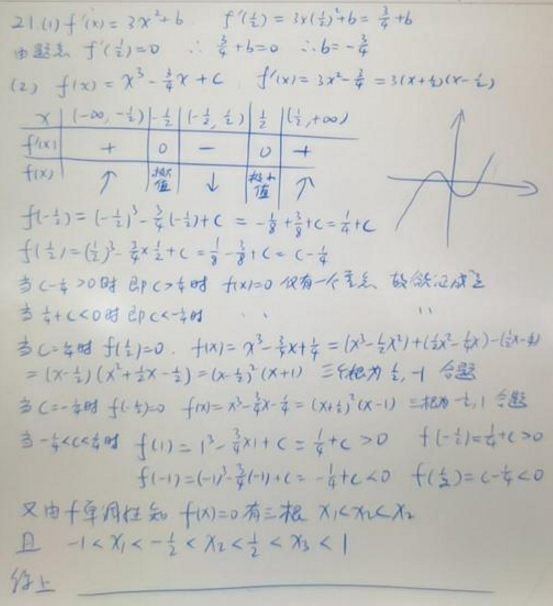 21.(1) f'(x) = 3x²+b   f'(½) = 3×(½)²+b = ¾+b
由题意 f'(½)=0 ∴ ¾+b=0 ∴b=-¾
(2) f(x) = x³-¾x+c   f'(x) = 3x²-¾ = 3(x+½)(x-½)
x (-∞,-½) -½ (-½,½) ½ (½,+∞)
f'(x) + 0 - 0 +
f(x) ↑ 极大值 ↓ 极小值 ↑
f(-½) = (-½)³-¾(-½)+c = -⅛+⅜+c=¼+c
f(½)=(½)³-¾×½+c=⅛-⅜+c= c-¼
当 c-¼>0时 即 c>¼时 f(x)=0 仅有一个零点 故欲证成立
当 ¼+c<0时 即 c<-¼时 〃 〃
当 c=¼时 f(½)=0. f(x)= x³-¾x+¼ = (x³-½x²)+(½x²-¼x)-(½x-¼)
=(x-½)(x²+½x-½)=(x-½)²(x+1) 三个根为½,-1 合题
当 c=-¼时 f(-½)=0 f(x)=x³-¾x-¼=(x+½)²(x-1) 三根为-½,1 合题
当-¼<c<¼时 f(1)=1³-¾×1+c=¼+c>0 f(-½)=¼+c>0
f(-1)=(-1)³-¾(-1)+c=-¼+c<0 f(½)=c-¼<0
又由f单调性知 f(x)=0有三根 x₁<x₂<x₂
且 -1<x₁<-½<x₂<½<x₃<1
综上